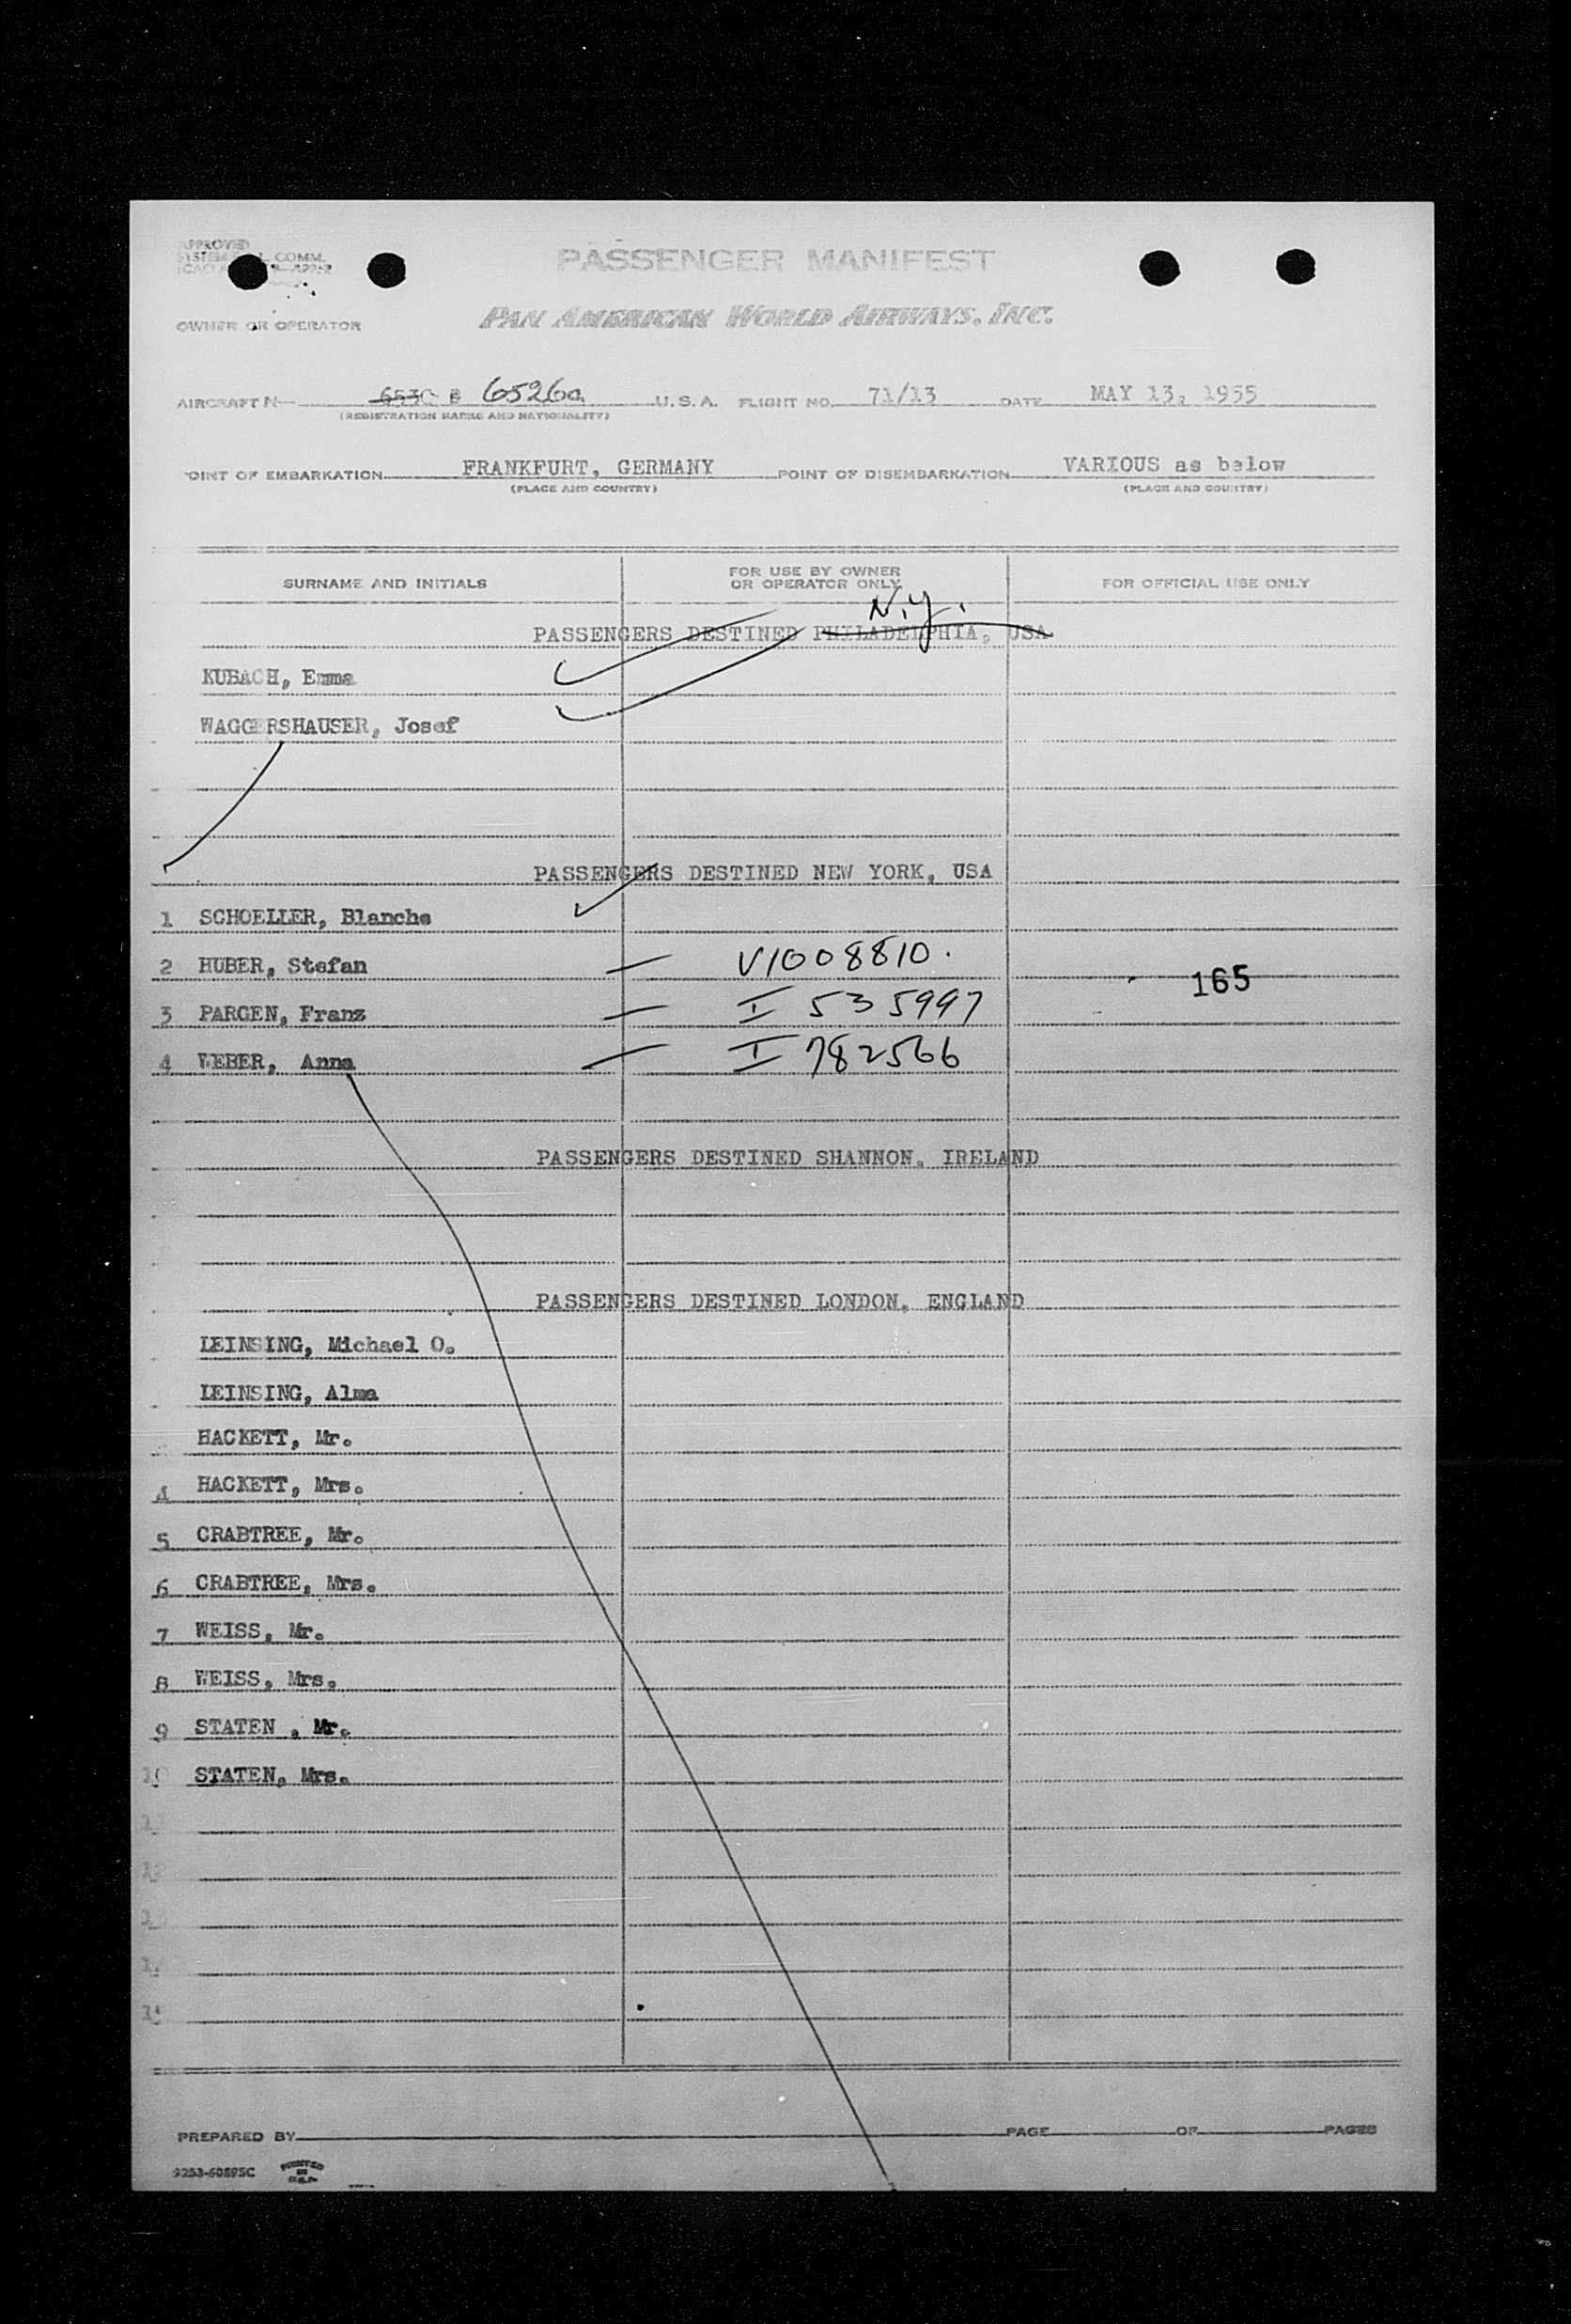 APPROVED
SYSTEM COMM.
PASSENGER MANIFEST
OWNER OR OPERATOR PAN AMERICAN WORLD AIRWAYS, INC.
AIRCRAFT N 6530 B 6526C U.S.A. FLIGHT NO. 71/13 DATE MAY 13, 1955
(REGISTRATION MARKS AND NATIONALITY)
POINT OF EMBARKATION FRANKFURT, GERMANY POINT OF DISEMBARKATION VARIOUS as below
(PLACE AND COUNTRY) (PLACE AND COUNTRY)
SURNAME AND INITIALS FOR USE BY OWNER OR OPERATOR ONLY FOR OFFICIAL USE ONLY
N.Y.
PASSENGERS DESTINED PHILADELPHIA, USA
KUBACH, Emma
WAGGERSHAUSER, Josef
PASSENGERS DESTINED NEW YORK, USA
1 SCHOELLER, Blanche
2 HUBER, Stefan — V1008810.
165
3 PARGEN, Franz — I 535997
4 WEBER, Anna — I 782566
PASSENGERS DESTINED SHANNON, IRELAND
PASSENGERS DESTINED LONDON, ENGLAND
LEINSING, Michael O.
LEINSING, Alma
HACKETT, Mr.
4 HACKETT, Mrs.
5 CRABTREE, Mr.
6 CRABTREE, Mrs.
7 WEISS, Mr.
8 WEISS, Mrs.
9 STATEN , Mr.
10 STATEN, Mrs.
11
12
13
14
15
PREPARED BY PAGE OF PAGES
9253-60895C PRINTED IN U.S.A.